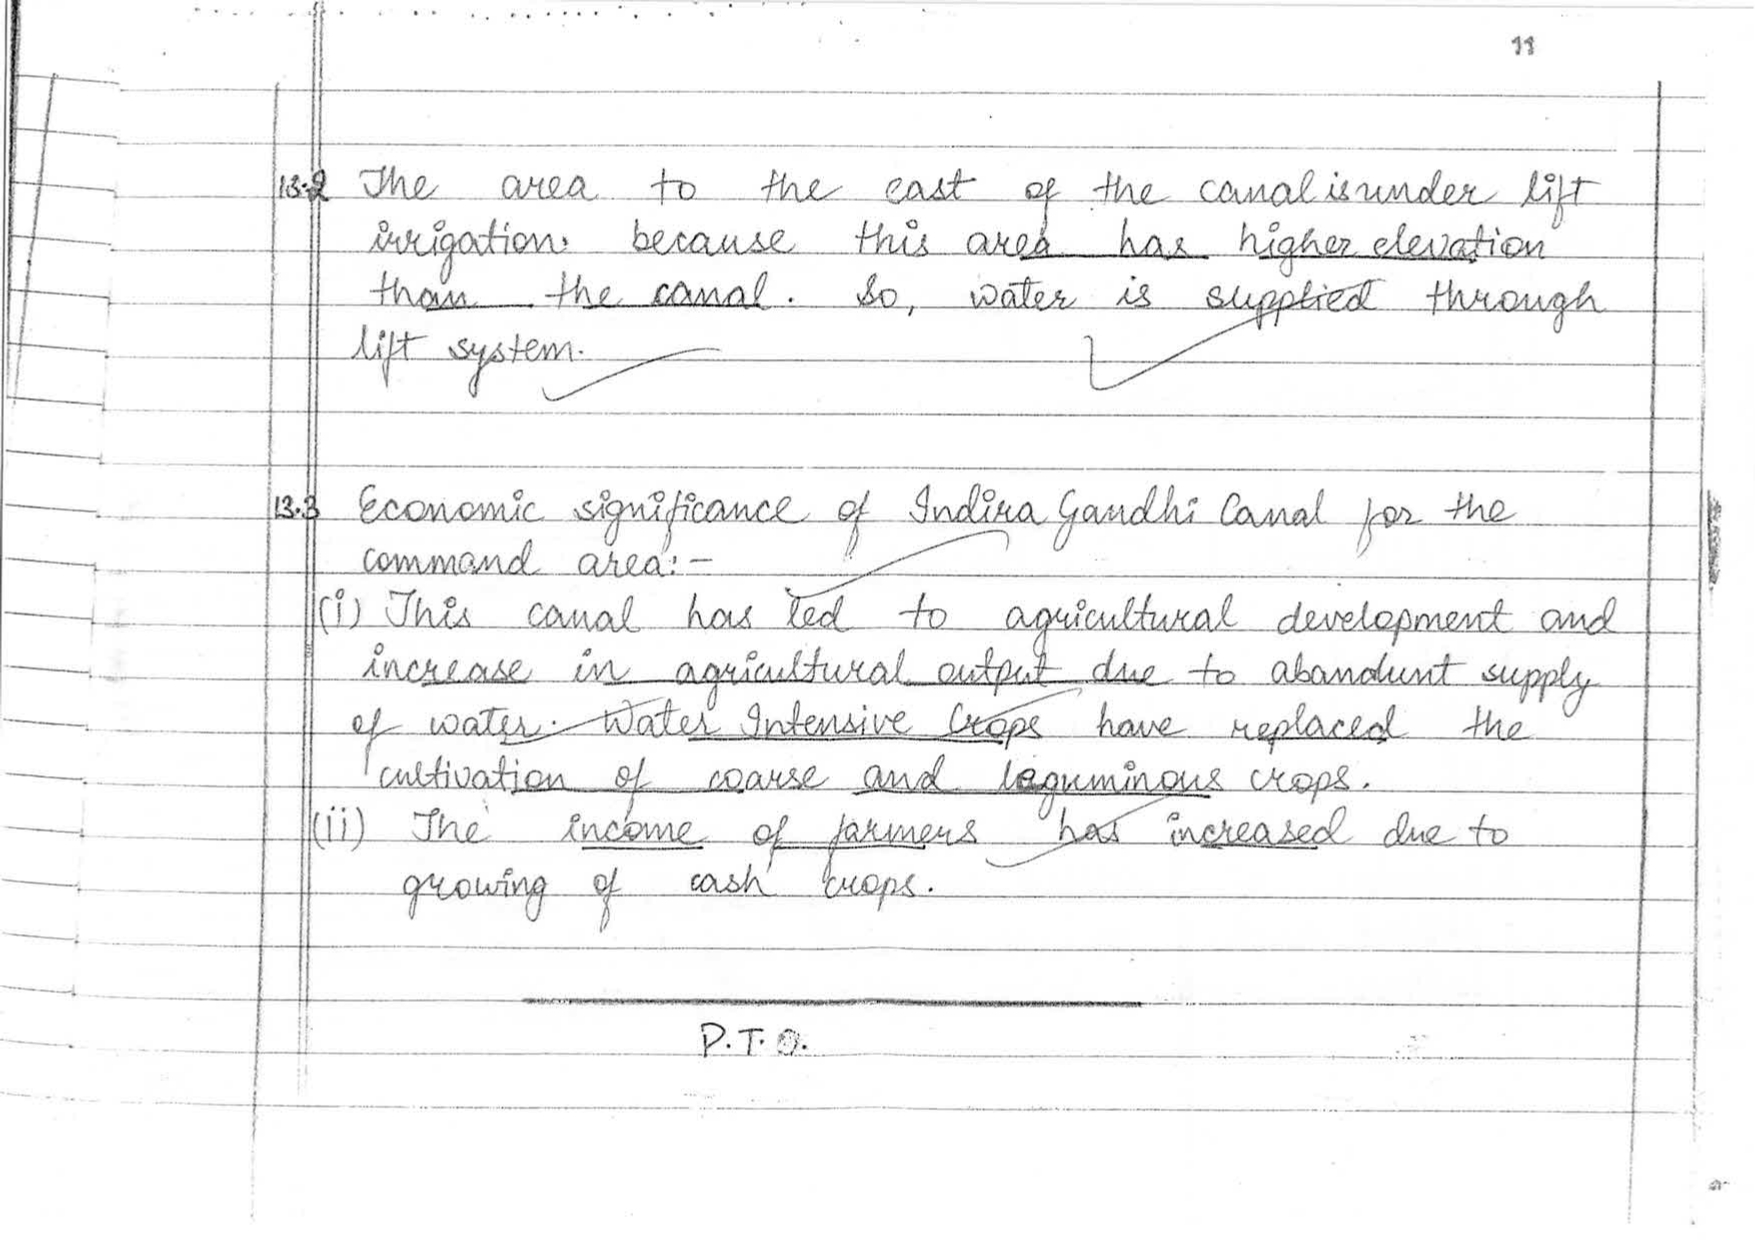 11
13.2 The area to the east of the canal is under lift
irrigation. because this area has higher elevation
than the canal. So, water is supplied through
lift system.
13.3 Economic significance of Indira Gandhi Canal for the
command area:-
(i) This canal has led to agricultural development and
increase in agricultural output due to abandunt supply
of water. Water Intensive Crops have replaced the
cultivation of coarse and leguminous crops.
(ii) The income of farmers has increased due to
growing of cash crops.
P.T.O.